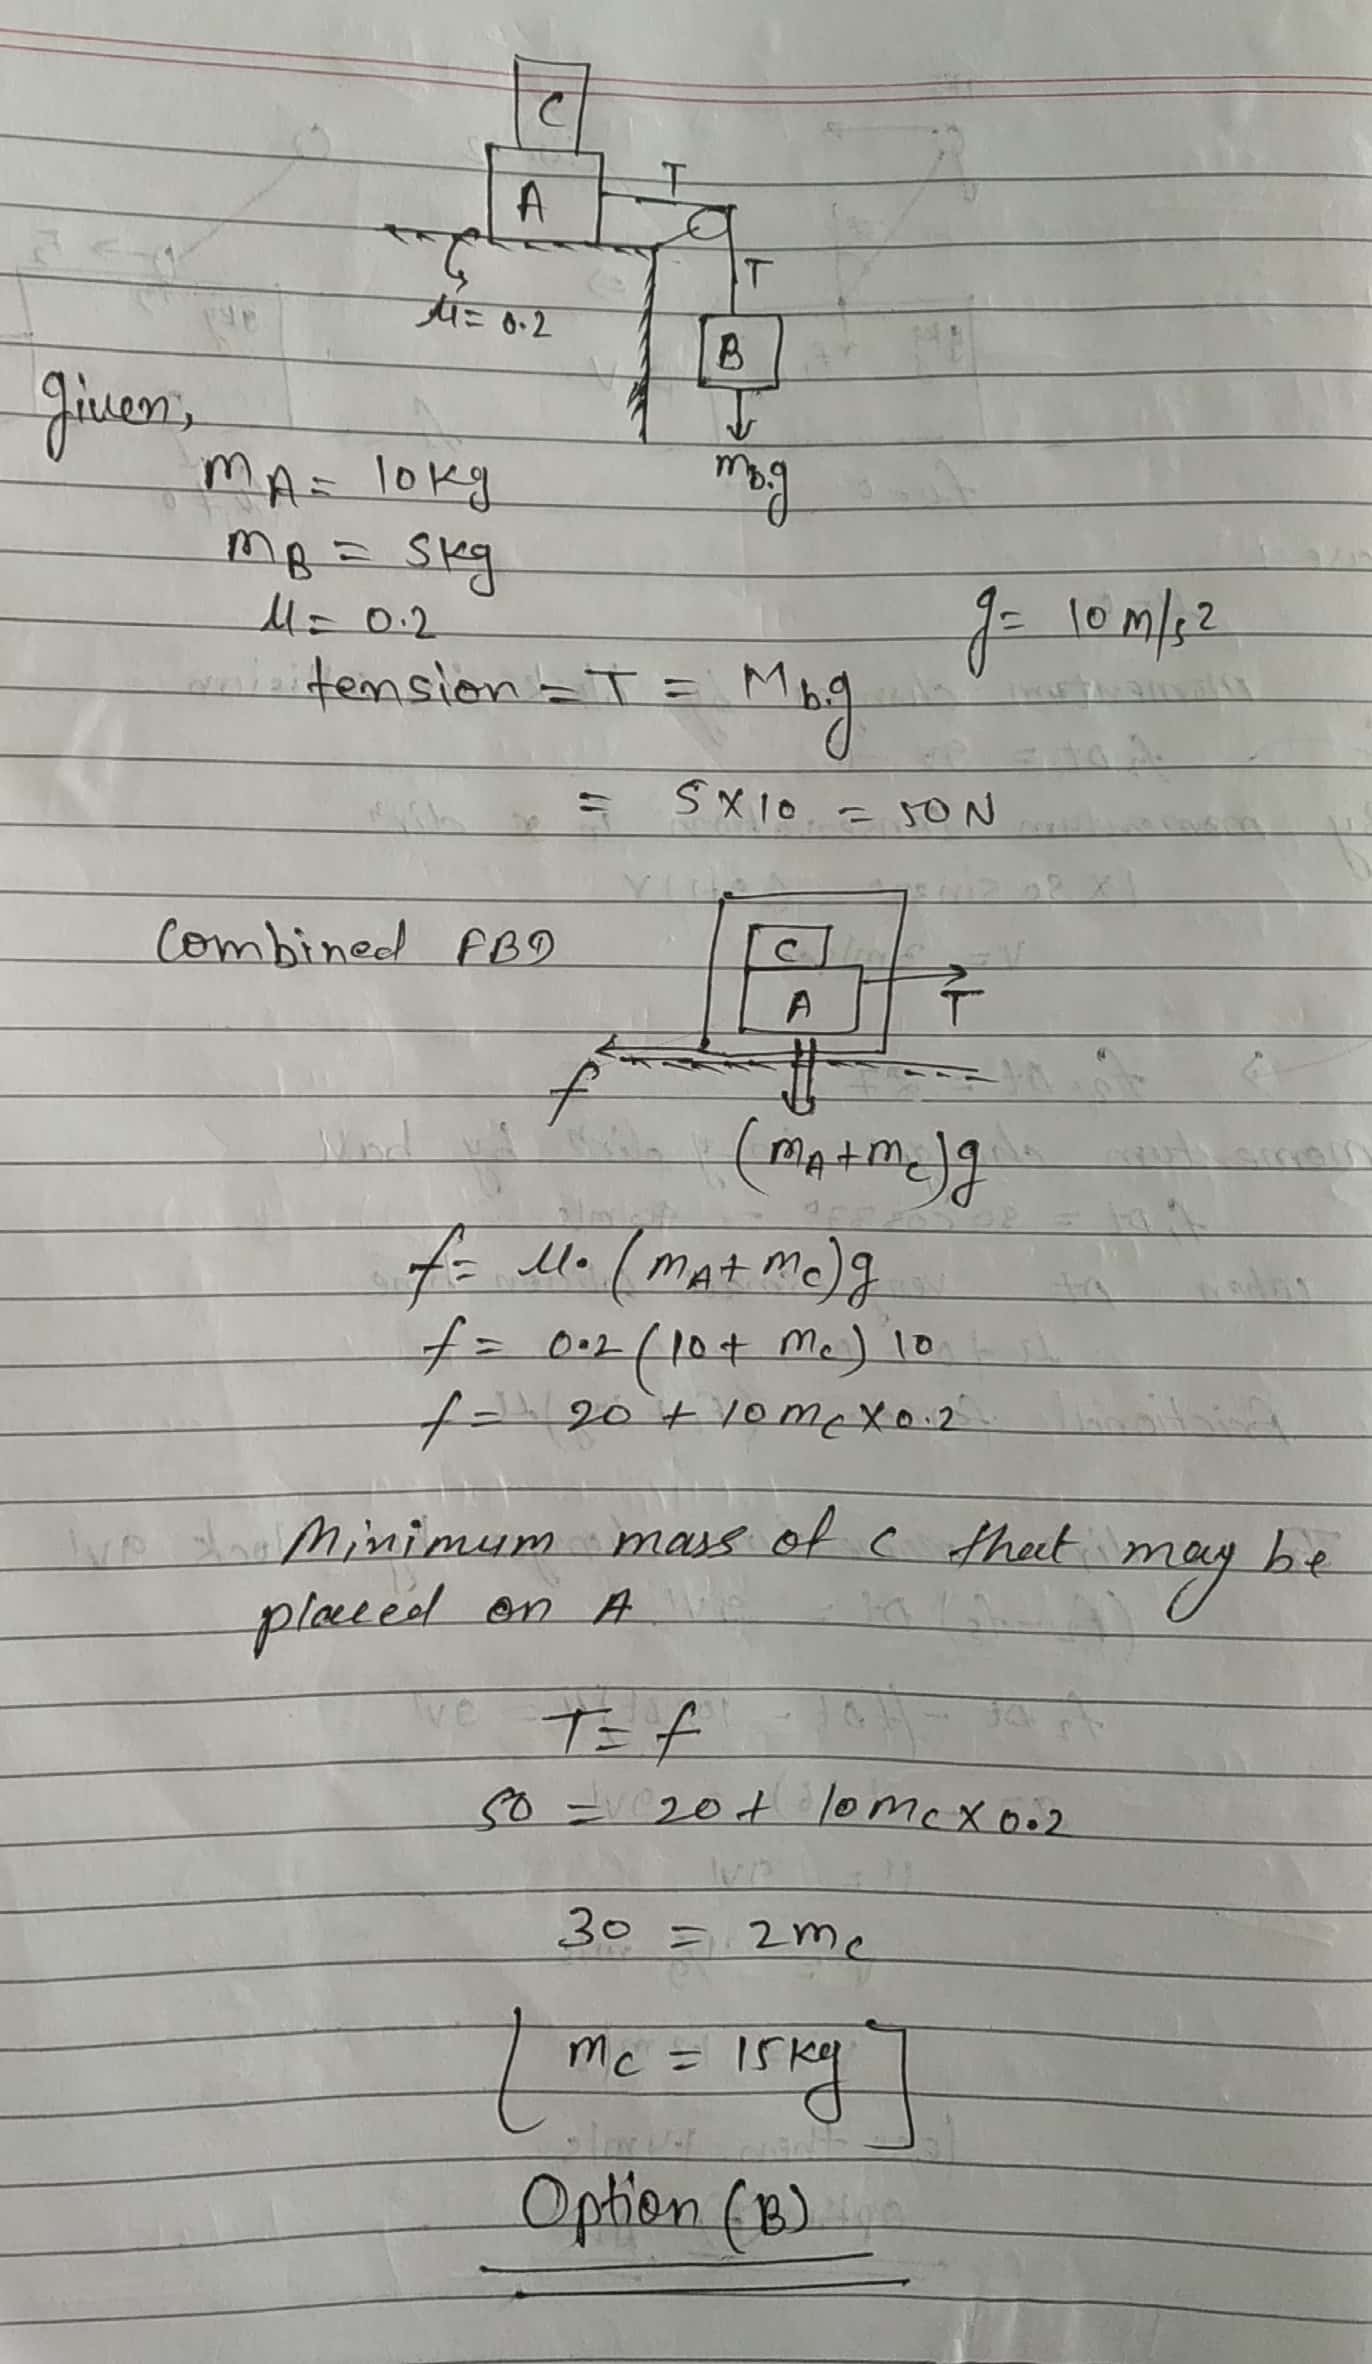 C
A
T
T
μ = 0.2
B
given,
mB.g
mA = 10kg
mB = 5kg
μ = 0.2
g = 10 m/s2
tension = T = Mb.g
= 5 x 10 = 50N
Combined FBD
C
A
T
f
(mA + mc)g
f = μ. (mA + mc)g
f = 0.2 (10 + mc) 10
f = 20 + 10mc x 0.2
Minimum mass of c that may be
placed on A
T = f
50 = 20 + 10mc x 0.2
30 = 2mc
[mc = 15kg]
Option (B)